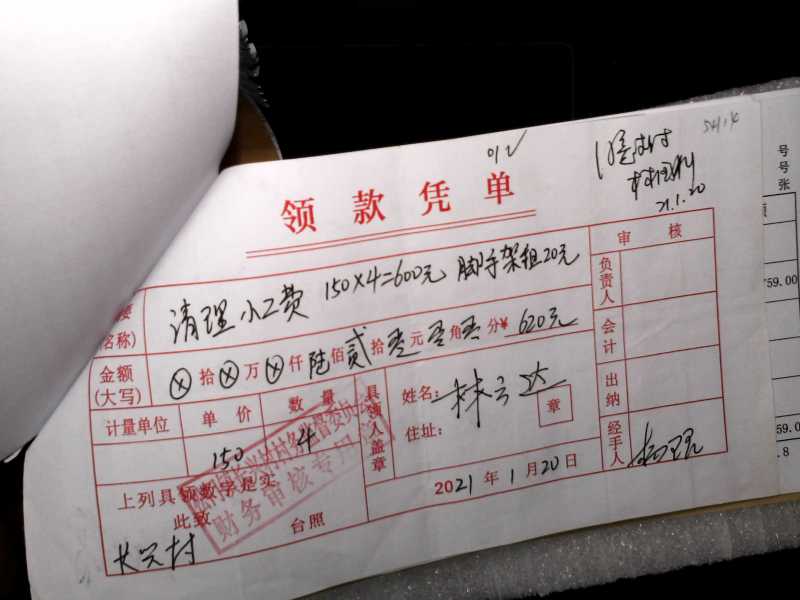 领款凭单
21.1.20
审核
清理小工费 150×4=600元 脚手架租20元
(名称)
负责人
金额
(大写)
ⓧ拾ⓧ万ⓧ仟陆佰贰拾零元零角零分¥ 620元
会计
计量单位 单价 数量
150 4
具领人盖章
姓名:
住址:
章
出纳
经手人
上列具领数字是实
此致
台照
长兴村
2021年1月20日
财务审核专用
号
号
张
759.00
59.0
.8